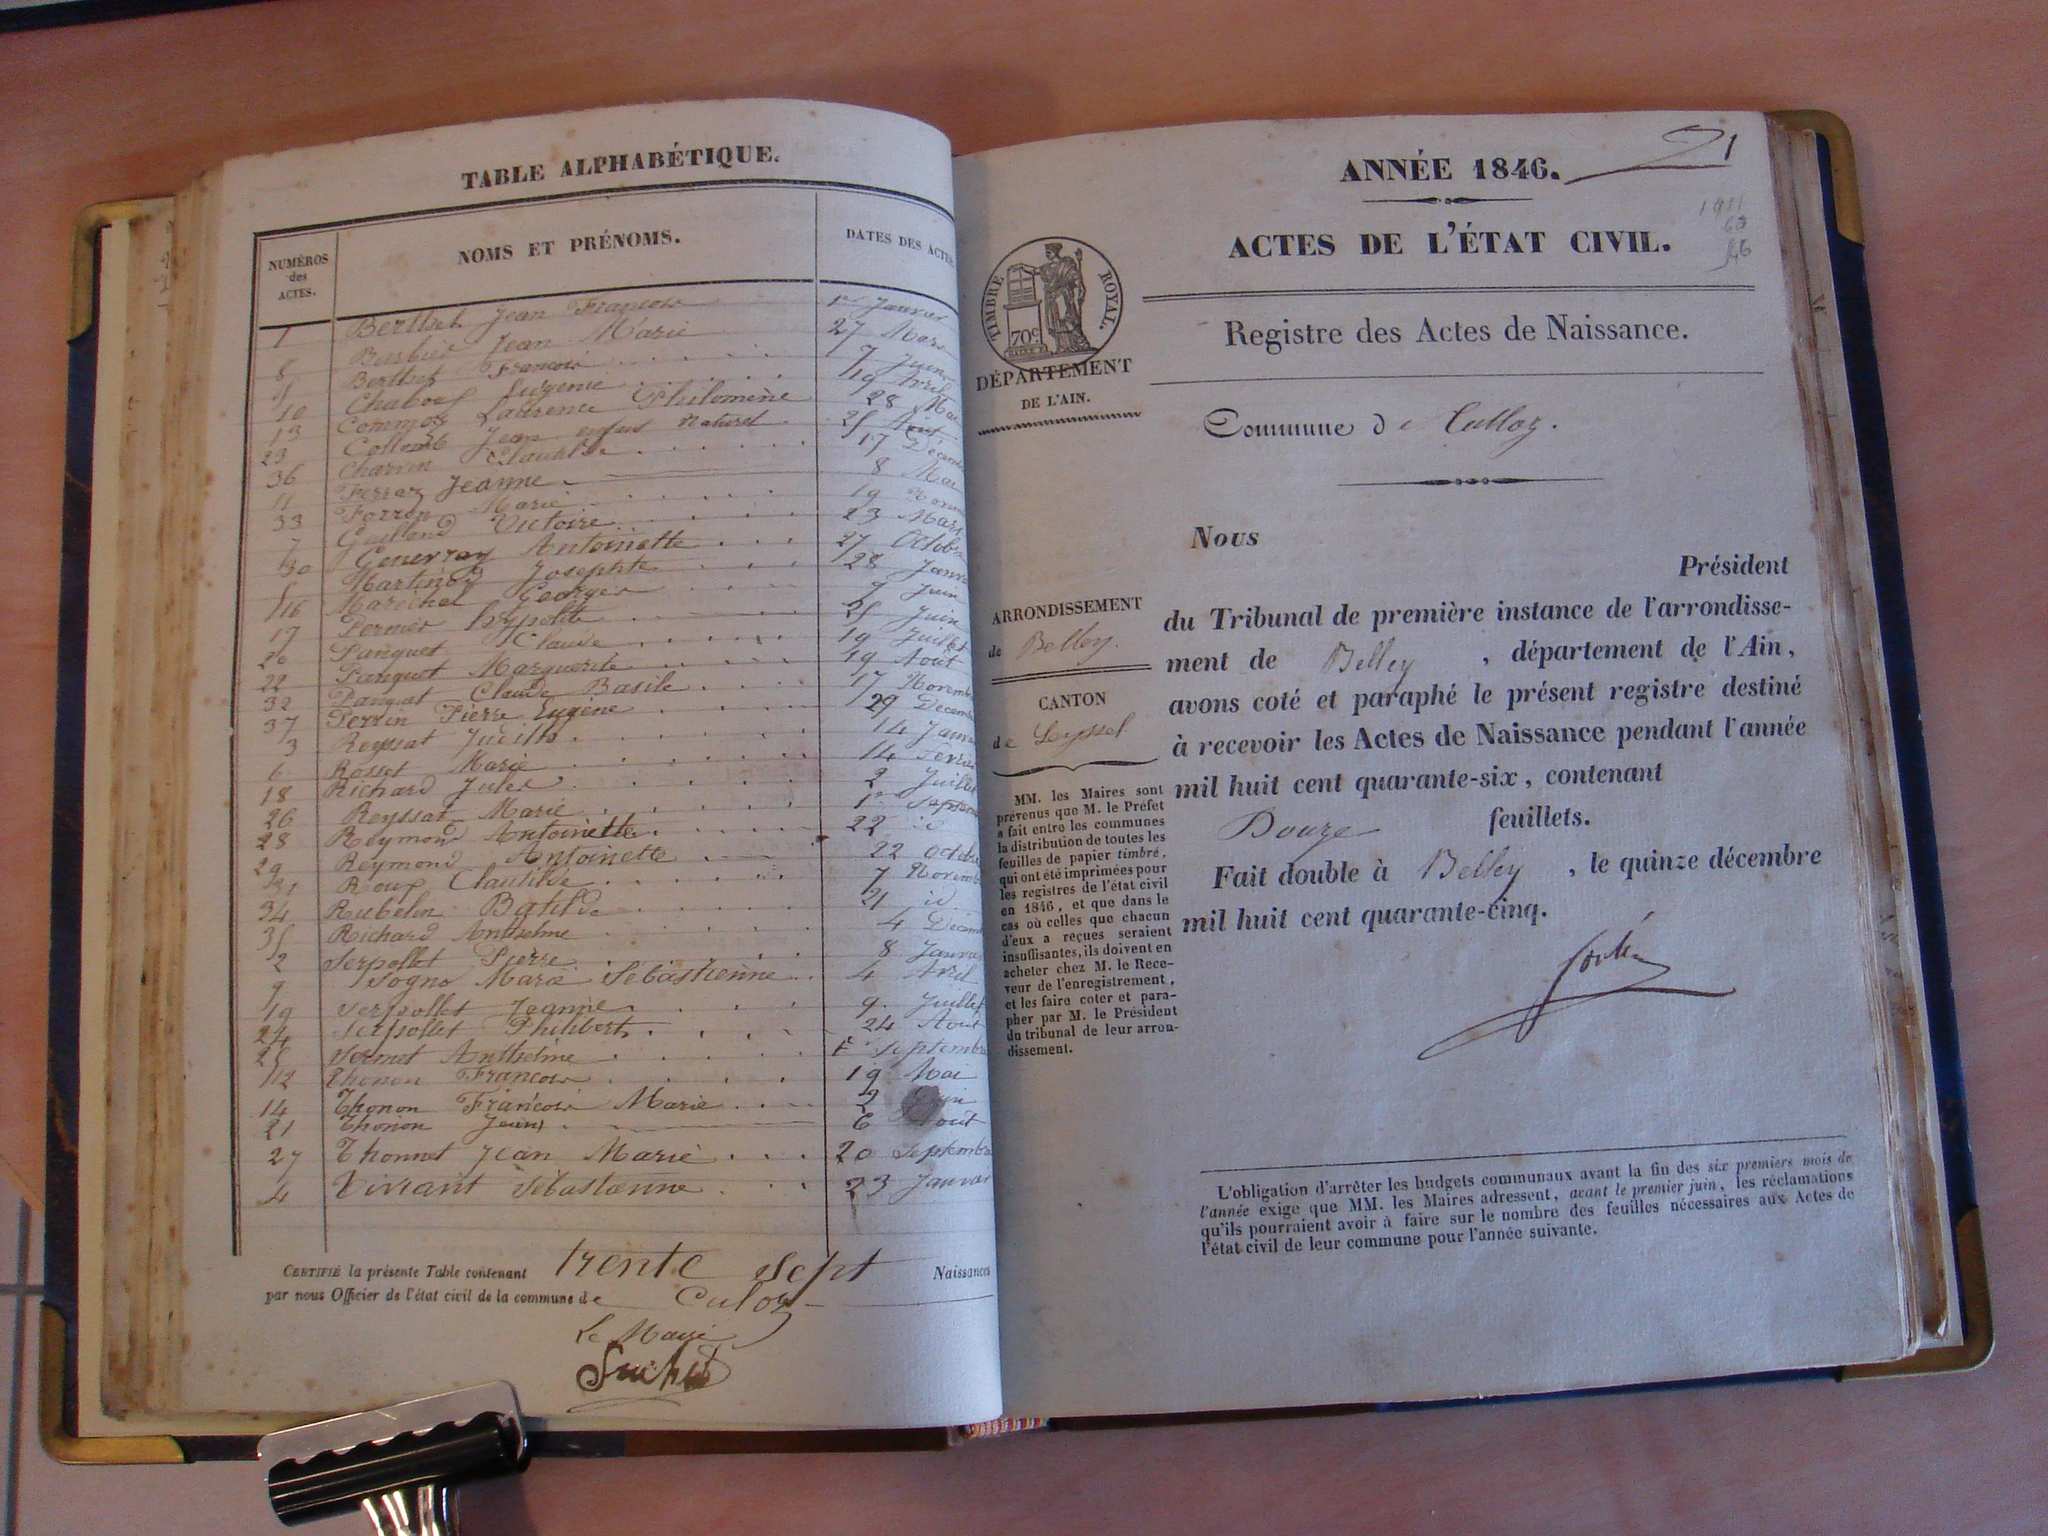 TABLE ALPHABÉTIQUE.
NUMÉROS des ACTES.
NOMS ET PRÉNOMS.
DATES DES ACTES
1 Berthet Jean François 1er Janvier
8 Barbier Jean Marie 27 Mars
Berthet François 7 Juin
10 Chaboux Eugénie 19 Avril
13 Commoz Laurence Philomène 28 Mai
23 Collomb Jean enfant naturel 25 Août
36 Charvin Claudine 17 Décembre
11 Ferraz Jeanne 8 Mai
33 Forron Marie 19 Novem
7 Guilland Victoire 23 Mars
30 Genevray Antoinette 27 Octobre
5 Martinod Josephte 28 Janvier
16 Maréchal Georges 7 Juin
17 Pernier hypolite 25 Juin
20 Panquet Claude 19 Juillet
22 Panquet Marguerite 19 Août
32 Panquet Claude Basile 17 Novembre
37 Perrin Pierre Eugène 29 Décemb
3 Reyssat Judith 14 Janvier
6 Rosset Marie 14 Fevrier
18 Richard Jules 2 Juillet
26 Reyssat Marie 1er Septem
28 Reymond Antoinette 22 id
29 Reymond Antoinette 22 Octobre
31 Roux Clautilde 7 Novemb
34 Rubelin Batilde 21 id
35 Richard Anthelme 4 Décem
2 Serpollet Pierre 8 Janvier
9 Sogno Marie Sébastienne 4 Avril
19 Serpollet Jeanne 9 Juillet
24 Serpollet Philibert 24 Août
25 Sermet Anthelme 1er Septembre
12 Thonon François 19 Mai
14 Thonon François Marie 2 Juin
21 Thonon Jean 6 Août
27 Thonnet Jean Marie 20 Septembre
4 Vivrant Sébastienne 23 Janvier
CERTIFIÉ la présente Table contenant trente sept Naissances
par nous Officier de l'état civil de la commune de Culoz
Le Maire
ANNÉE 1846.
1
ACTES DE L'ÉTAT CIVIL.
TIMBRE ROYAL.
70c
Registre des Actes de Naissance.
DÉPARTEMENT
DE L'AIN.
Commune de Culloz.
Nous
Président
du Tribunal de première instance de l'arrondisse-
ment de Belley, département de l'Ain,
avons coté et paraphé le présent registre destiné
à recevoir les Actes de Naissance pendant l'année
mil huit cent quarante-six, contenant
Douze feuillets.
Fait double à Belley, le quinze décembre
mil huit cent quarante-cinq.
ARRONDISSEMENT
de Belley.
CANTON
de Seyssel
MM. les Maires sont
prévenus que M. le Préfet
a fait entre les communes
la distribution de toutes les
feuilles de papier timbré,
qui ont été imprimées pour
les registres de l'état civil
en 1846, et que dans le
cas où celles que chacun
d'eux a reçues seraient
insuffisantes, ils doivent en
acheter chez M. le Rece-
veur de l'enregistrement,
et les faire coter et para-
pher par M. le Président
du tribunal de leur arron-
dissement.
L'obligation d'arrêter les budgets communaux avant la fin des six premiers mois de
l'année exige que MM. les Maires adressent, avant le premier juin, les réclamations
qu'ils pourraient avoir à faire sur le nombre des feuilles nécessaires aux Actes de
l'état civil de leur commune pour l'année suivante.